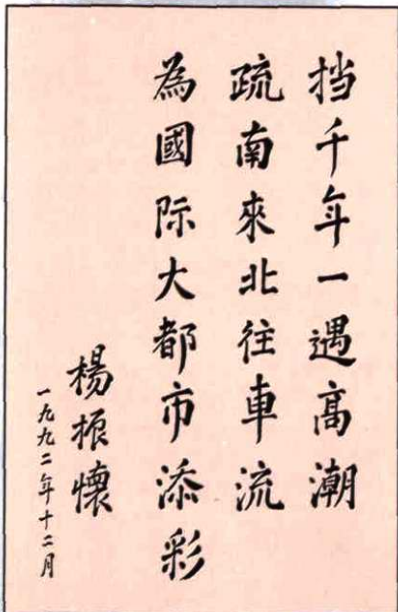 挡千年一遇高潮
疏南來北往車流
為國际大都市添彩
楊振懷
一九九二年十二月